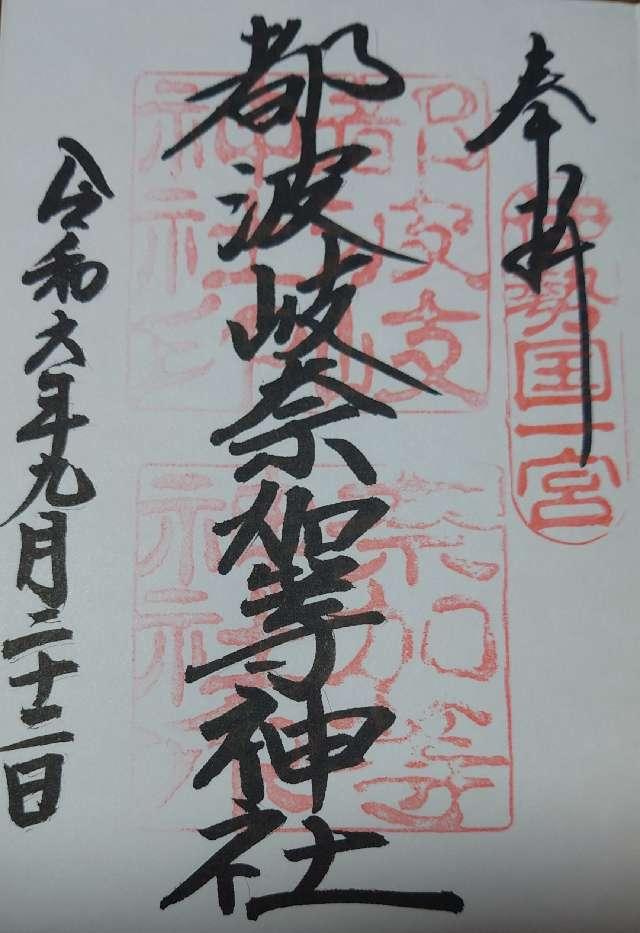 奉拝
伊勢国一宮
都波岐奈加等神社
令和六年九月二十二日